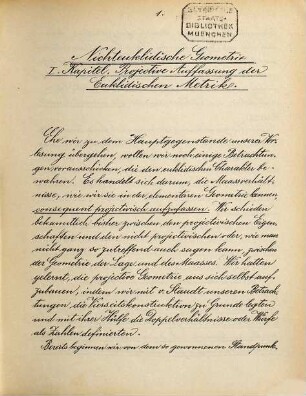 1.
BAYERISCHE
STAATS-
BIBLIOTHEK
MUENCHEN
Nichteuklidische Geometrie
I. Kapitel. Projective Auffassung der
Euklidischen Metrik.
Ehe wir zu dem Hauptgegenstande unserer Vor-
lesung übergehen, wollen wir noch einige Betrachtun-
gen vorausschicken, die den euklidischen Charakter be-
wahren. Es handelt sich darum, die Maassverhält-
nisse, wie wir sie in der elementaren Geometrie kennen
consequent projectivisch aufzufassen. Wir schieden
bekanntlich bisher zwischen den projectivischen Eigen-
schaften und den nicht projectivischen oder, wie man
nicht ganz so zutreffend auch sagen kann, zwischen
der Geometrie der Lage und des Maasses. Wir hatten
gelernt, die projective Geometrie aus sich selbst auf-
zubauen, indem wir mit v. Staudt unseren Betrach-
tungen die Vierseitsconstruktion zu Grunde legten
und mit ihrer Hülfe die Doppelverhältnisse oder Würfe
als Zahlen definierten.
Bereits beginnen wir von dem so gewonnenen Standpunk-